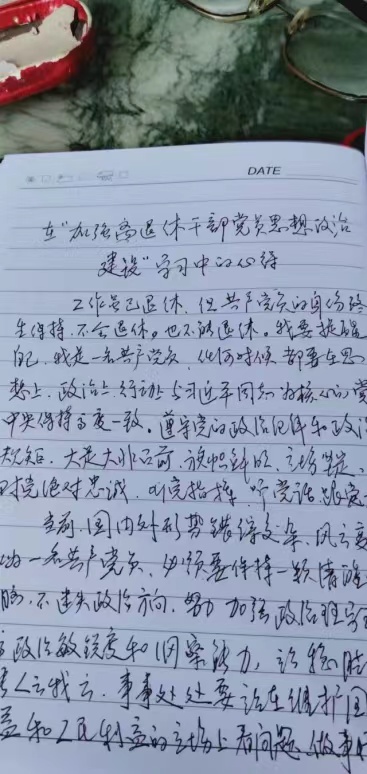 DATE
在"加强离退休干部党员思想政治
建设"学习中的心得
工作虽已退休,但共产党员的身份终
生保持,不会退休,也不能退休。我要提醒
自己,我是一名共产党员,任何时候都要在思
想上、政治上、行动上与习近平同志为核心的党
中央保持高度一致。遵守党的政治纪律和政治
规矩,大是大非面前,旗帜鲜明,立场坚定,
对党绝对忠诚,听党指挥,听党话,跟党
当前,国内外形势错综交杂,风云变
为一名共产党员,必须要保持一颗清醒
脑,不迷失政治方向,努力加强政治理学
政治敏锐度和洞察能力,
人云我云,事事处处要站在维护国
益和人民利益的立场上看问题、做事